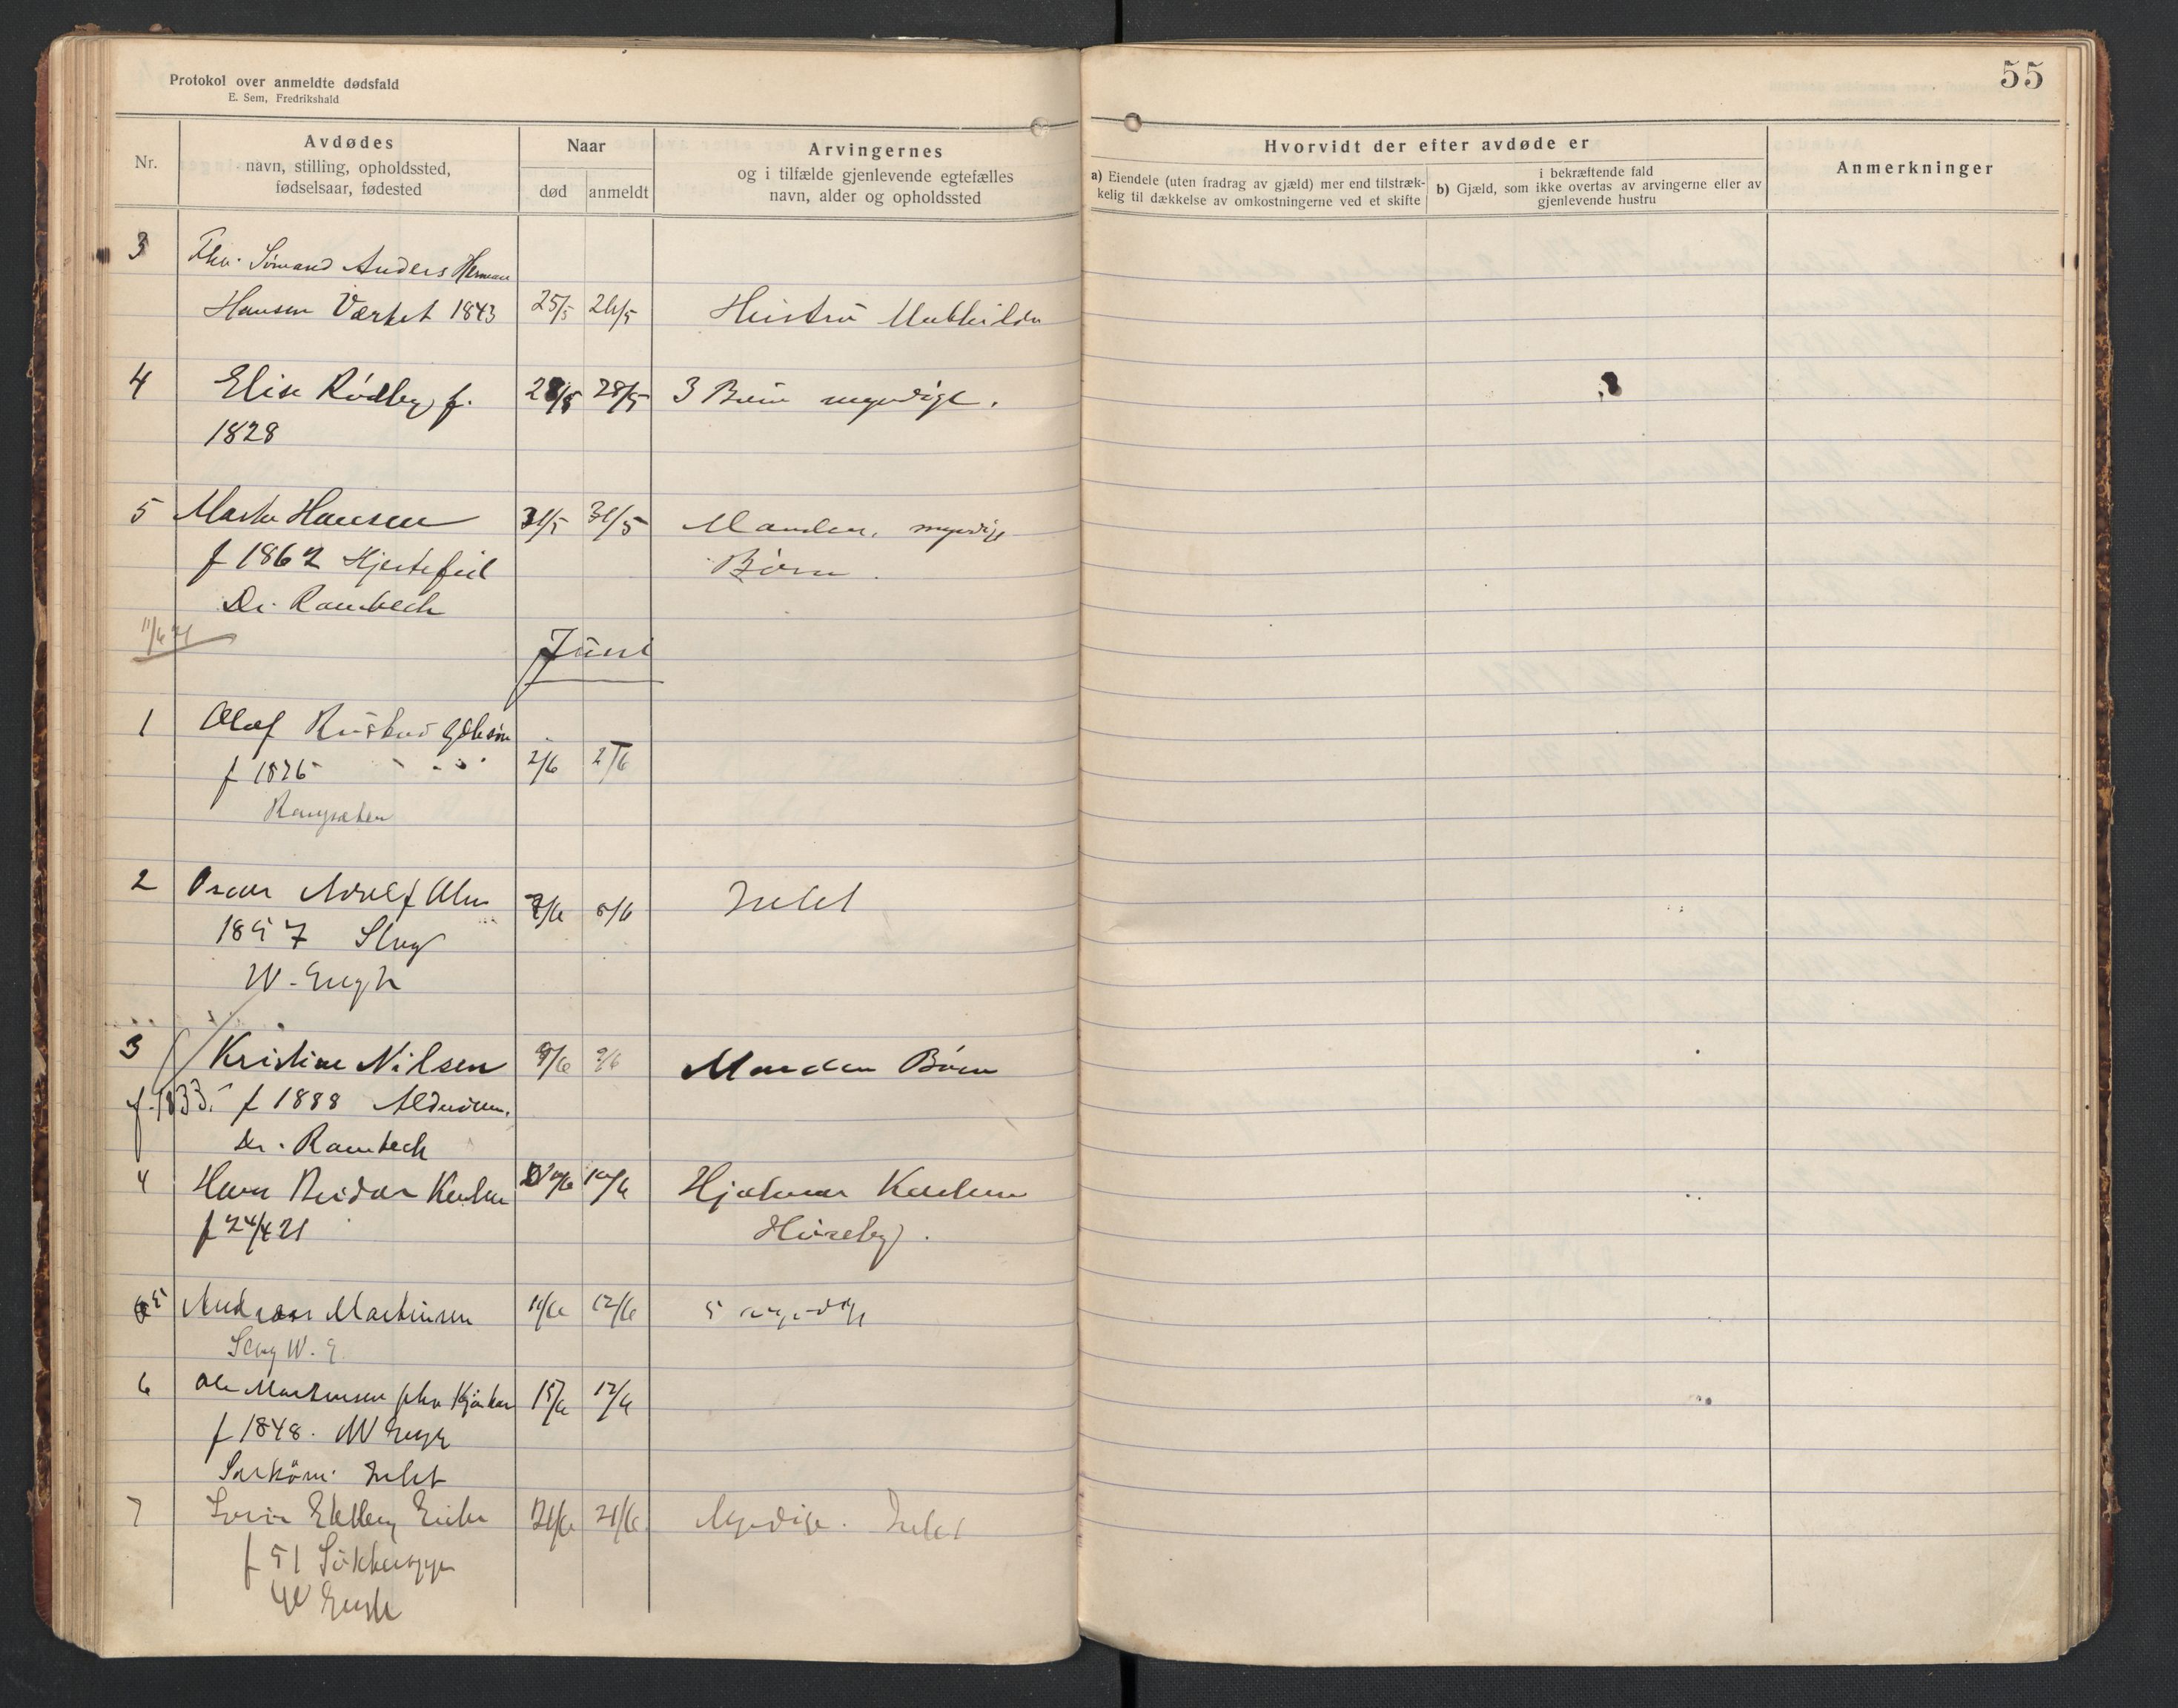 Protokol over anmeldte dødsfald
E. Sem, Fredrikshald
55
Nr.
Avdødes
navn, stilling, opholdssted,
fødselsaar, fødested
Naar
død
anmeldt
Arvingernes
og i tilfælde gjenlevende egtefælles
navn, alder og opholdssted
Hvorvidt der efter avdøde er
a) Eiendele (uten fradrag av gjæld) mer end tilstræk-
kelig til dækkelse av omkostningerne ved et skifte
i bekræftende fald
b) Gjæld, som ikke overtas av arvingerne eller av
gjenlevende hustru
Anmerkninger
3 Fhv. Sømand Anders Herman
Hansen Værket 1843 25/5 26/5 Hustru Mathilde
4 Elise Rødby f. 28/5 28/5 3 Børn myndige.
1828
5 Marte Hansen 31/5 31/5 Manden, myndige
f 1862 Hjertefeil Børn.
Dr. Rambech
11/6 21
Juni
1 Olaf
f 1826 2/6 2/6
2 Oscar Adolf 8/6 Intet
1857 Slag
W. Engh
3 Kristine Nilsen 9/6 9/6 Manden Børn
f. 1833. f 1888 Aldersdom.
Dr. Rambech
4 Hans Reidar Karlsen 10/6 10/6 Hjalmar Karlsen
f 24/4 21 Huseby.
5 Andreas Martinsen 11/6 12/6 5 myndige
Slag W. E.
6 Ole Martinsen fhv 15/6 17/6
f 1848. W Engh
Intet
7 21/6 21/6 Myndige. Intet
f 51
W Engh